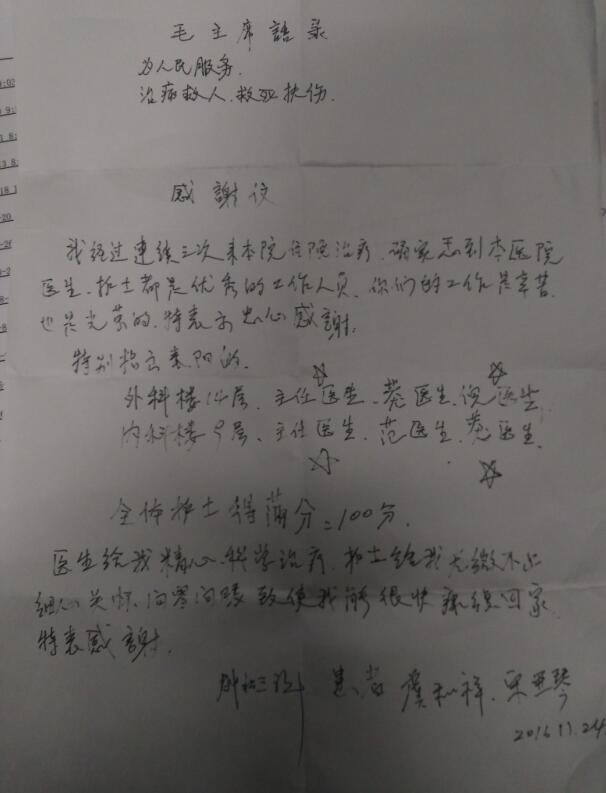 毛主席語录
为人民服务.
治病救人.救死扶伤.
感謝
我经过连续三次来本院住院治疗.确实感到本医院
医生.护士都是优秀的工作人员.你们的工作是辛苦.
也是光荣的.特表示忠心感謝.
特别指出表阳的
外科楼14层、主任医生、蔡医生、倪医生
内科楼9层、主任医生、范医生、医生
全体护士得满分=100分.
医生给我精心.科学治疗.护士给我无微不止
细心关怀.问寒问暖致使我能很快康复回家.
特表感謝.
患者 虞和祥.
2016.11.24.
9:
8:
13 8:
18 1
-20
-2
-8